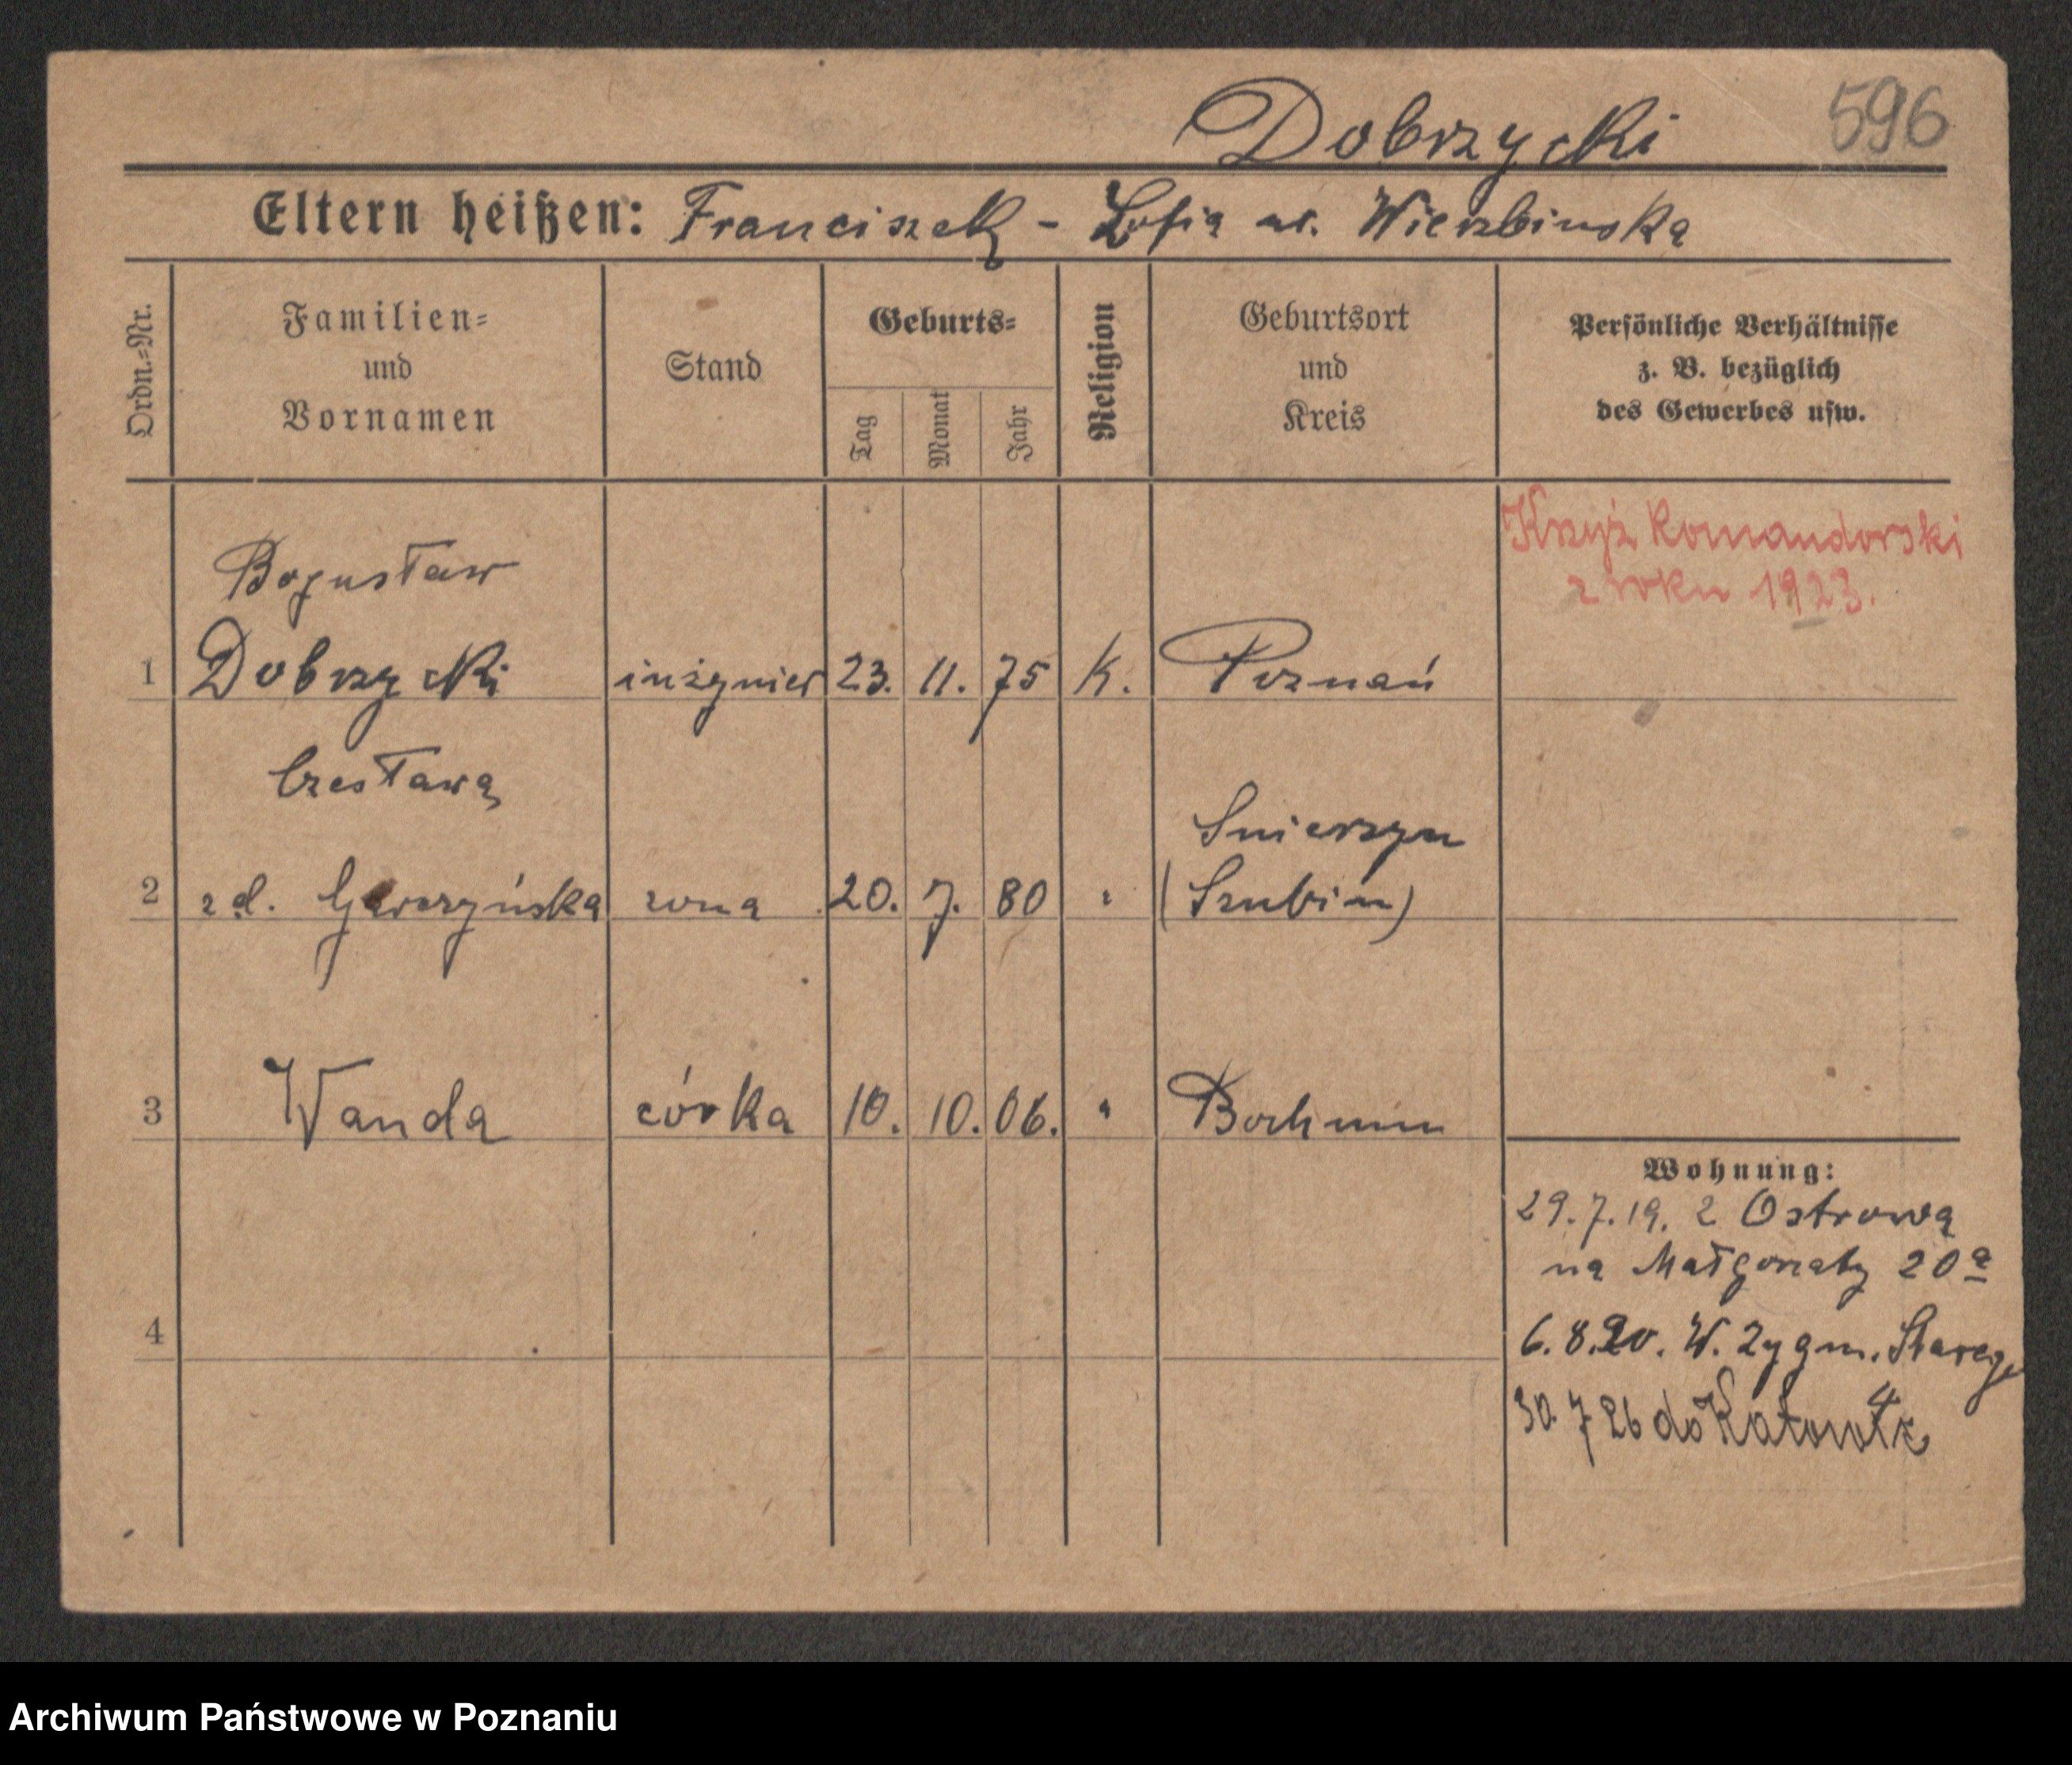 596
Dobrzycki
Eltern heißen: Franciszek - Zofia ur. Wierzbinska
Ordn.=Nr.
Familien=
und
Vornamen
Stand
Geburts=
Tag
Monat
Jahr
Religion
Geburtsort
und
Kreis
Persönliche Verhältnisse
z. B. bezüglich
des Gewerbes usw.
Krzyż Komandorski
z roku 1923.
Bogusław
1 Dobrzycki inżynier 23. 11. 75 K. Poznań
Czesława
Snierzyn
2 z d. Garczyńska zona 20. 7. 80 " (Szubin)
3 Wanda córka 10. 10. 06. " Bochum
Wohnung:
29.7.19. z Ostrowa
na Małgorzaty 20a
4
6.8.20. W. Zygm. Starego
4
30 7 26 do Katowic
Archiwum Państwowe w Poznaniu